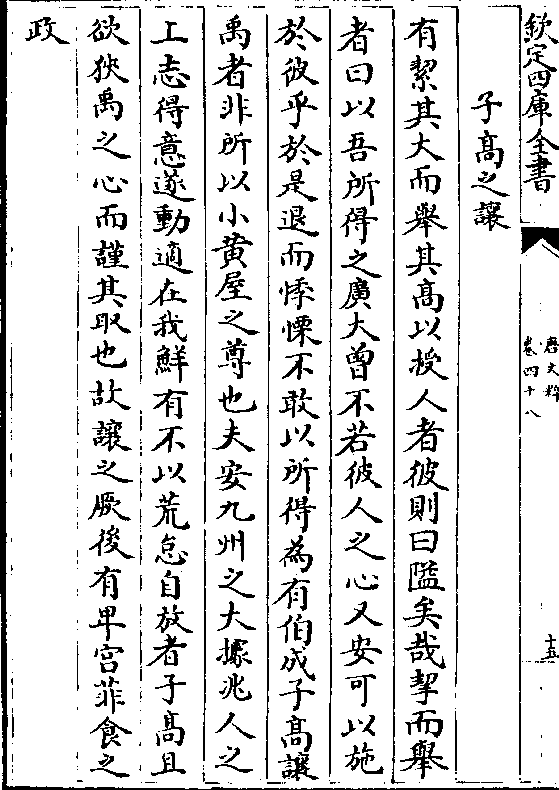 欽定四庫全書
唐文粹
卷四十八
十五
子髙之讓
有絜其大而舉其髙以授人者彼則曰隘矣哉挈而舉
者曰以吾所得之廣大曾不若彼人之心又安可以施
於彼乎於是退而悸慄不敢以所得為有伯成子髙讓
禹者非所以小黄屋之尊也夫安九州之大據兆人之
上志得意遂動適在我鮮有不以荒怠自放者子髙且
欲狹禹之心而謹其取也故讓之厥後有卑宫菲食之
政